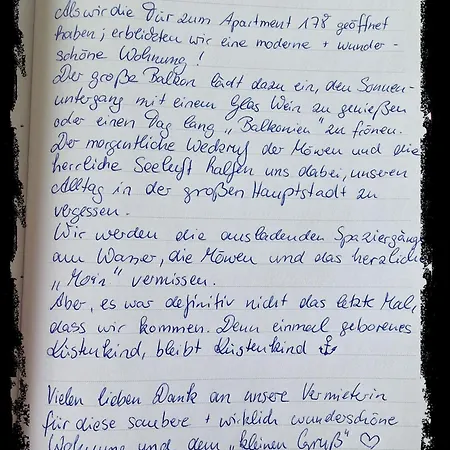 Als wir die Tür zum Apartment 178 geöffnet
haben, erblickten wir eine moderne + wunder-
schöne Wohnung!
Der große Balkon lädt dazu ein, den Sonnen-
untergang mit einem Glas Wein zu genießen
oder einen Tag lang „Balkonien" zu frönen.
Der morgentliche Weckruf der Möwen und die
herrliche Seeluft halfen uns dabei, unseren
Alltag in der großen Hauptstadt zu
vergessen.
Wir werden die ausladenden Spaziergänge
am Wasser, die Möwen und das herzlich
„Moin" vermissen.
Aber, es war definitiv nicht das letzte Mal,
dass wir kommen. Denn einmal geborenes
Küstenkind, bleibt Küstenkind ⚓
Vielen lieben Dank an unsere Vermieterin
für diese saubere + wirklich wunderschöne
Wohnung und dem „kleinen Gruß" ♡